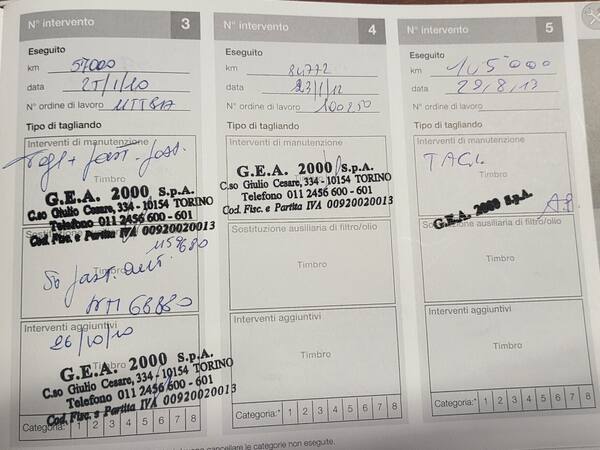 N° intervento 3
Eseguito
km 57000
data 25/1/10
N° ordine di lavoro
Tipo di tagliando
Interventi di manutenzione
G.E.A. 2000 S.p.A.
C.so Giulio Cesare, 334 - 10154 TORINO
Telefono 011 2456 600 - 601
Cod. Fisc. e Partita IVA 00920020013
Timbro
Interventi aggiuntivi
26/10/10
Timbro
G.E.A. 2000 S.p.A.
C.so Giulio Cesare, 334 - 10154 TORINO
Telefono 011 2456 600 - 601
Cod. Fisc. e Partita IVA 00920020013
Categoria:* 1 2 3 4 5 6 7 8
N° intervento 4
Eseguito
km 84772
data 23/1/12
N° ordine di lavoro 100250
Tipo di tagliando
Interventi di manutenzione
G.E.A. 2000 S.p.A.
C.so Giulio Cesare, 334 - 10154 TORINO
Telefono 011 2456 600 - 601
Cod. Fisc. e Partita IVA 00920020013
Sostituzione ausiliaria di filtro/olio
Timbro
Interventi aggiuntivi
Timbro
Categoria:* 1 2 3 4 5 6 7 8
N° intervento 5
Eseguito
km 105000
data 29/8/13
N° ordine di lavoro
Tipo di tagliando
Interventi di manutenzione
TAGL.
G.E.A. 2000 S.p.A.
Sostituzione ausiliaria di filtro/olio
Timbro
Interventi aggiuntivi
Timbro
Categoria:* 1 2 3 4 5 6 7 8
cancellare le categorie non eseguite.